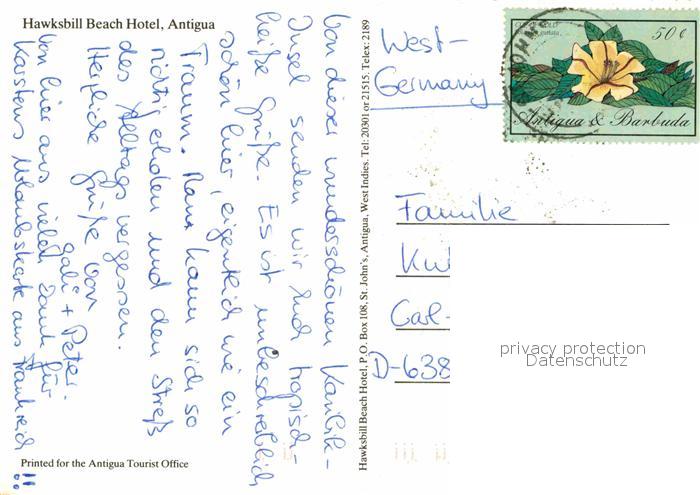 Hawksbill Beach Hotel, Antigua
Von dieser wunderschönen Karibik-
Insel senden wir Euch tropisch-
heiße Grüße. Es ist unbeschreiblich
schön hier, eigentlich wie ein
Traum. Man kann sich so
richtig erholen und den Streß
des Alltags vergessen.
Herzliche Grüße von
Gabi + Peter
Von hier aus vielen Dank für
Karstens Urlaubskarte aus Frankreich !!
Printed for the Antigua Tourist Office
Hawksbill Beach Hotel, P.O. Box 108, St. John's, Antigua, West Indies. Tel: 20301 or 21515. Telex: 2189
50¢
Antigua & Barbuda
West-
Germany
Familie
Carl-
D-638
privacy protection
Datenschutz